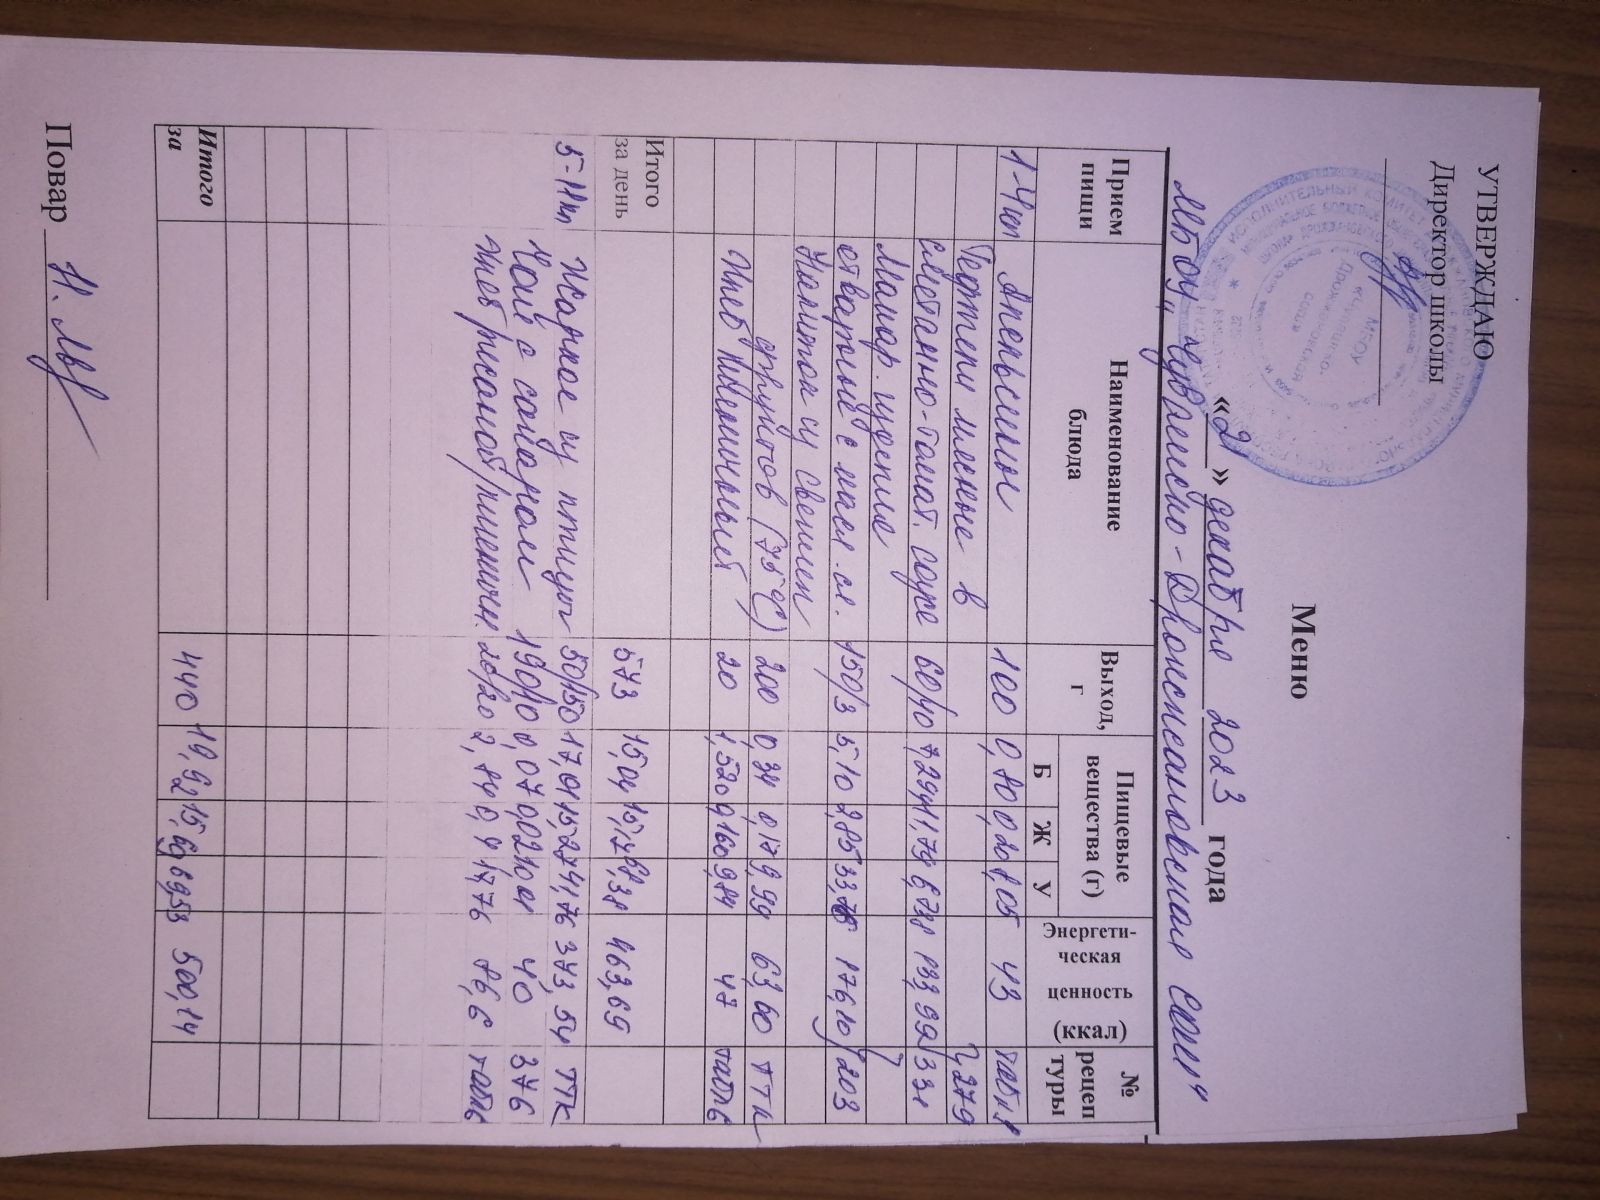 УТВЕРЖДАЮ
Директор школы
Меню
«21» декабре 2023 года
МБОУ "Чувашско-Дрожжановская сош"
Прием пищи Наименование блюда Выход, г Пищевые вещества (г) Энергети-ческая ценность (ккал) № рецеп туры
Б Ж У
1-4кл Апельсины 100 0,80 0,20 8,05 43
Тефтели мясные в 279
сметанно-томат. соусе 60/40 7,29 11,79 133,99 331
Макар. изделия
отварные с масл. сл. 150/3 5,10 2,85 176,10 203
Напиток из свежих
фруктов (75°C) 200 0,17 9,99 63,60 ТТК
Хлеб пшеничный 20 1,52 0,16 9,84 47 табл6
Итого за день 573 15,04 463,69
5-11кл Жаркое из птицы 50/150 17,01 15,27 41,76 373,54 ТТК
Чай с сахаром 190/10 0,07 0,02 40 376
Хлеб ржаной/пшеничн. 20/20 86,6 табл6
Итого за 440 19,92 15,69 69,53 500,14
Повар